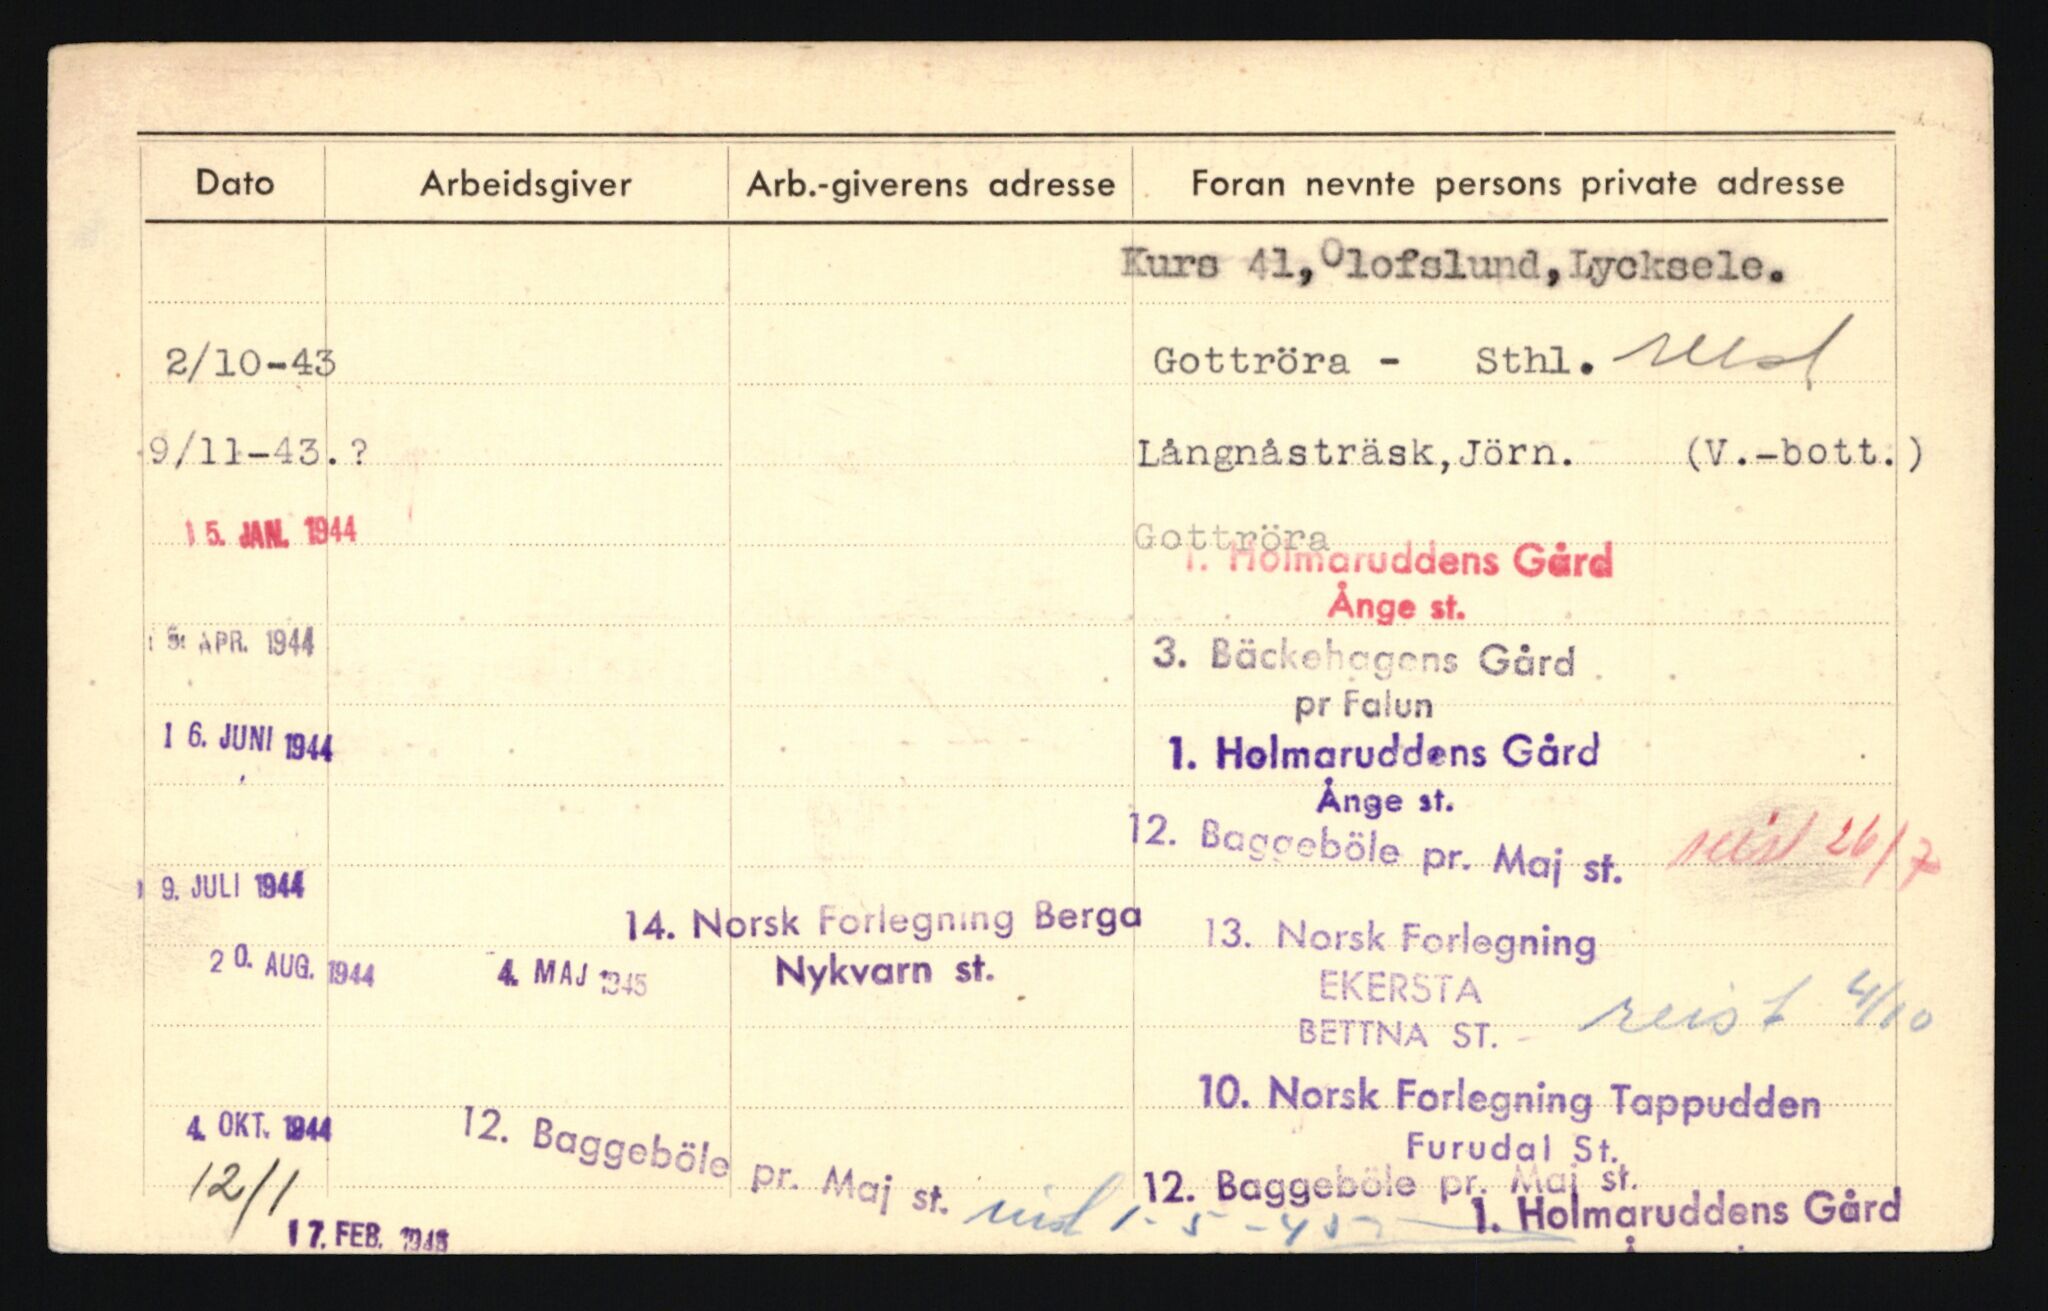 Dato Arbeidsgiver Arb.-giverens adresse Foran nevnte persons private adresse
Kurs 41, Olofslund, Lycksele.
2/10-43 Gottröra - Sthl. reist
9/11-43.? Långnåsträsk, Jörn. (V.-bott.)
15. JAN. 1944 Gottröra
1. Holmaruddens Gård
Ånge st.
APR. 1944 3. Bäckehagens Gård
pr Falun
16. JUNI 1944 1. Holmaruddens Gård
Ånge st.
12. Baggeböle pr. Maj st. reist 26/7
19. JULI 1944
14. Norsk Forlegning Berga 13. Norsk Forlegning
20. AUG. 1944 4. MAJ 1945 Nykvarn st. EKERSTA
BETTNA ST. - reist 4/10
10. Norsk Forlegning Tappudden
4. OKT. 1944 Furudal St.
12. Baggeböle pr. Maj st. reist 1-5-45
12/1 12. Baggeböle pr. Maj st.
17. FEB. 1945 1. Holmaruddens Gård